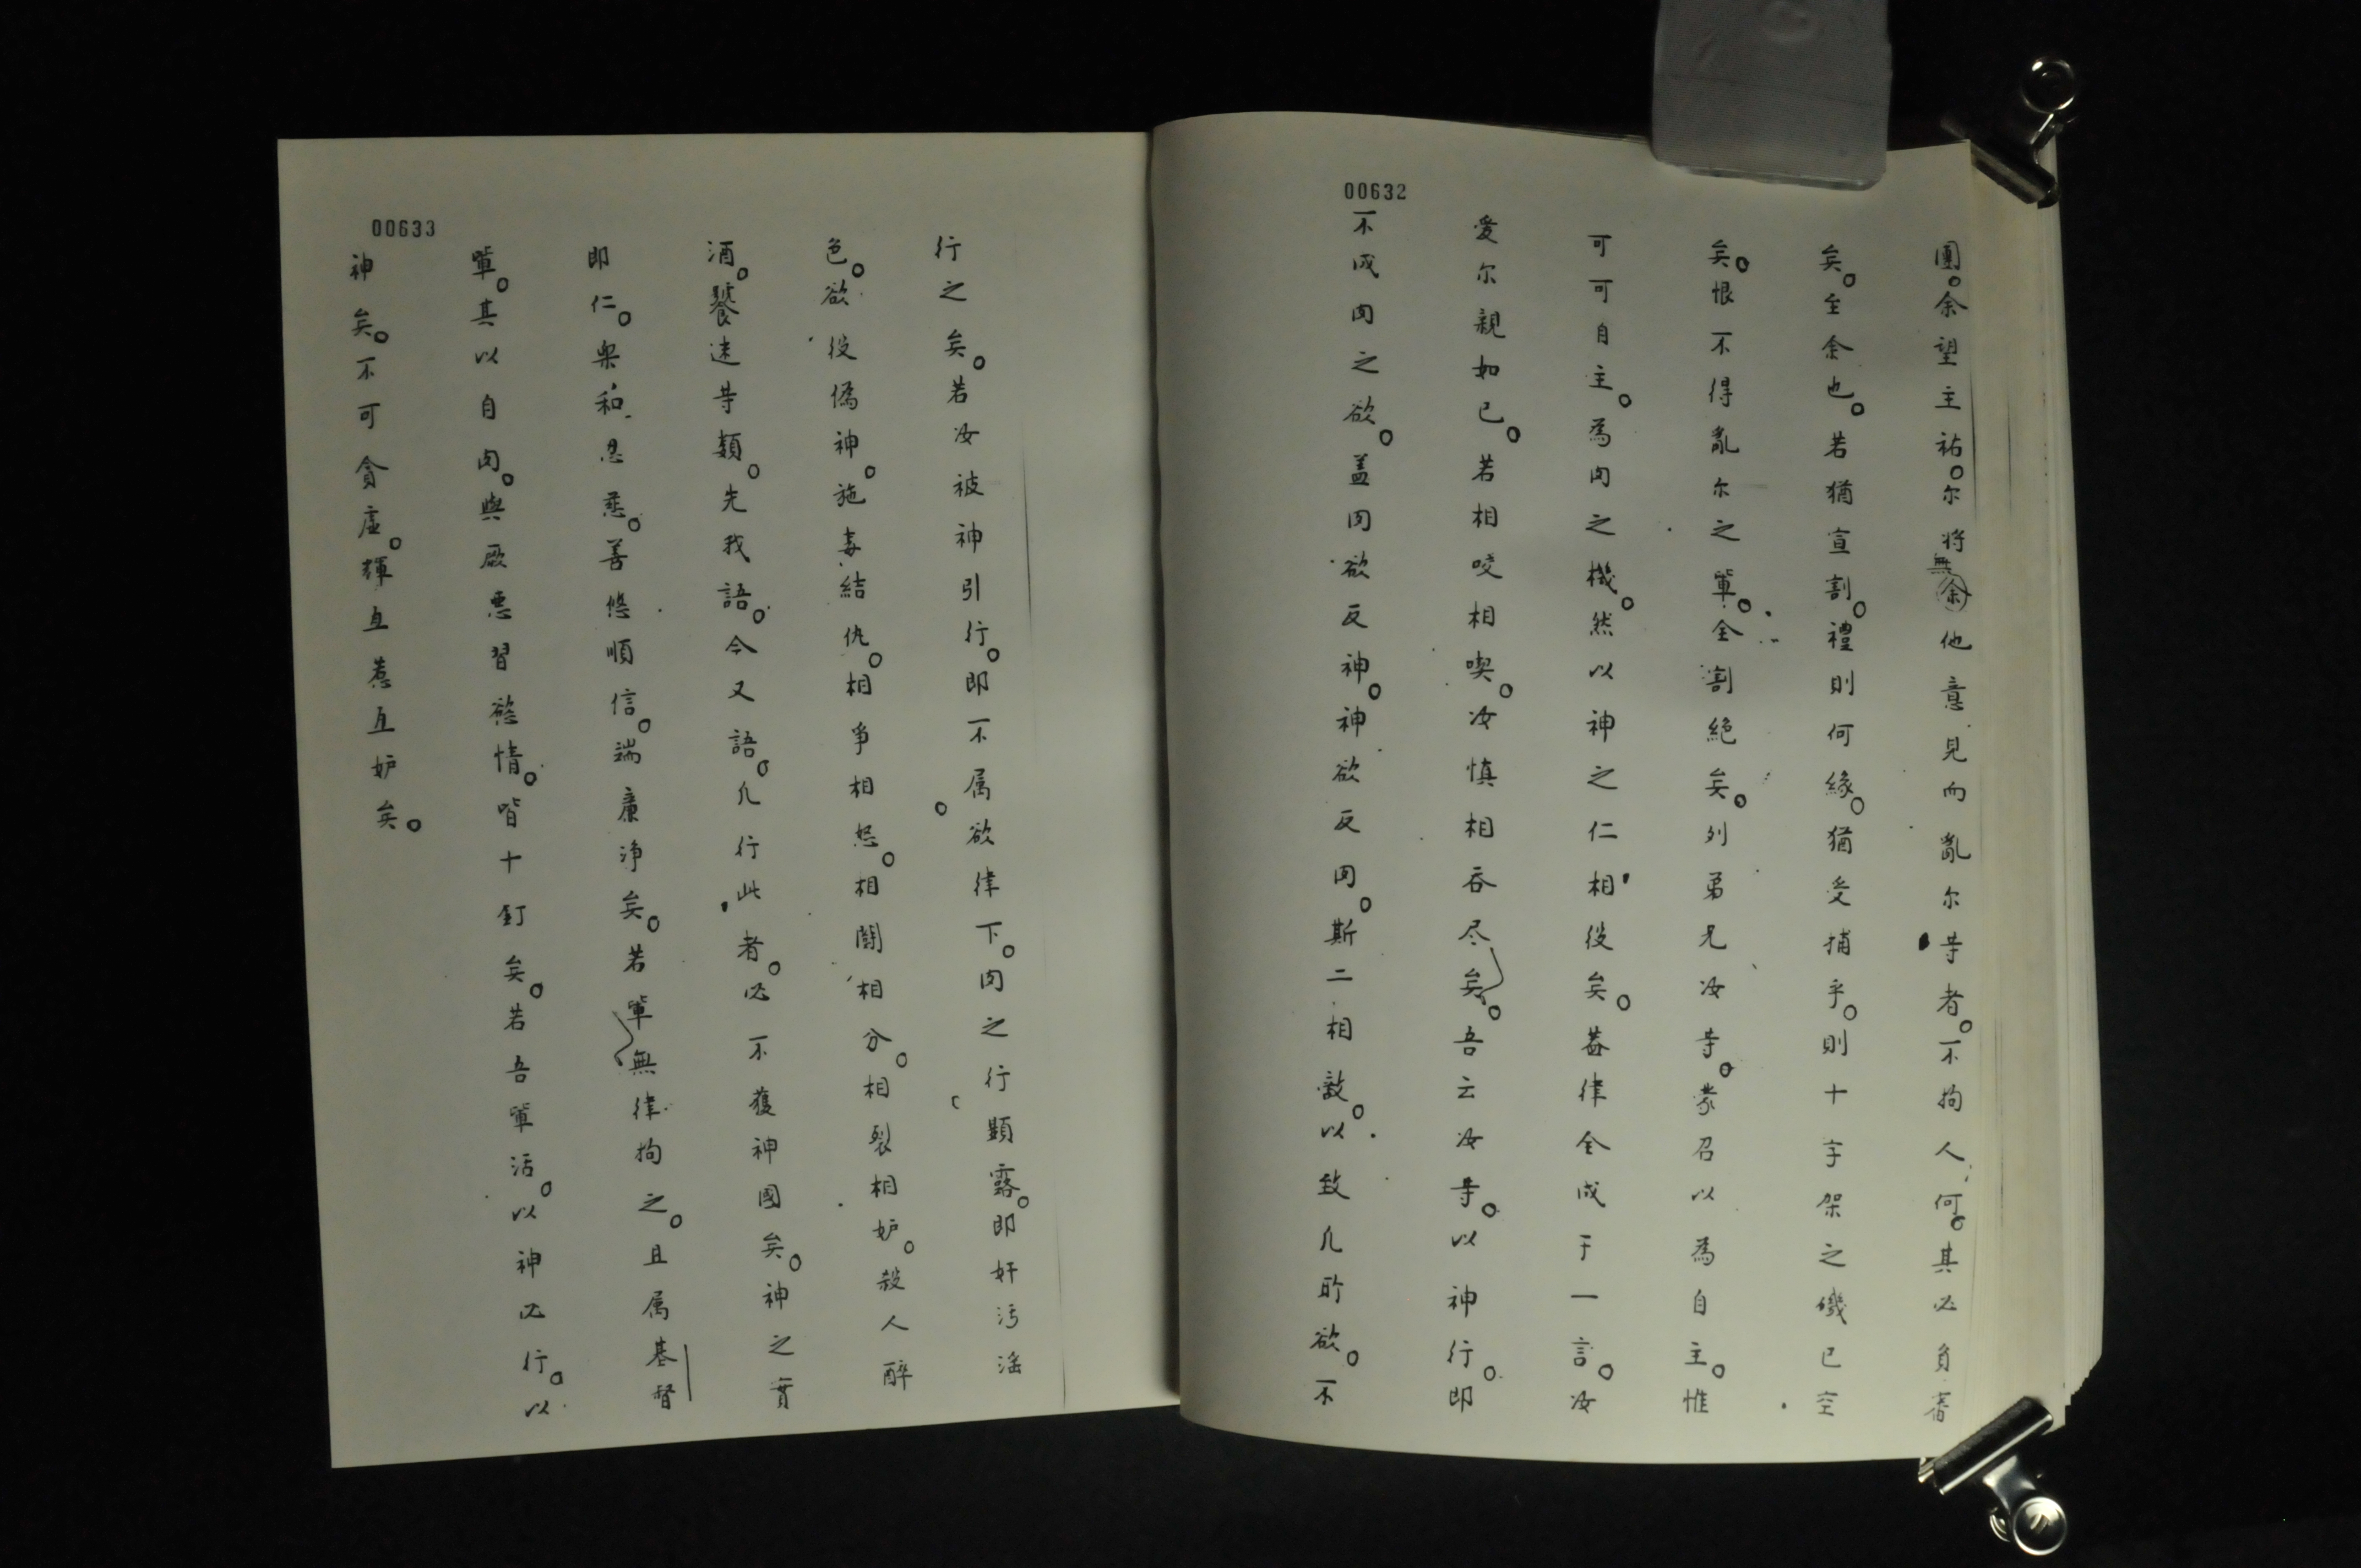 00632
團。余望主祐。尔将無余他意見而亂尔䓁者。不拘人何。其必負㫺
矣。至余也。若猶宣割。禮則何緣。猶受捕乎。則十字架之磯已空
矣。恨不得亂尔之軰。全割絕矣。列弟兄汝䓁。蒙召以為自主。惟
可可自主。為肉之機。然以神之仁相役矣。葢律全成于一言。汝
愛尔親如己。若相咬相喫。汝慎相吞尽矣。吾云汝䓁。以神行。即
不成肉之欲。盖肉欲反神。神欲反肉。斯二相敵。以致凢所欲。不
00633
行之矣。若汝被神引行。即不属欲律下。肉之行顕露。即奸污滛
色。欲役偽神。施毒結仇。相爭相怒。相鬪相分。相裂相妒。殺人醉
酒。饕迷䓁類。先我語。今又語。凢行此者。必不獲神國矣。神之實
即仁。樂和忍慈。善悠順信。端廉淨矣。若軰無律拘之。且属基督
軰。其以自肉。與厥悪習慾情。皆十釘矣。若吾軰活。以神必行。以
神矣。不可貪虛。輝互惹互妒矣。